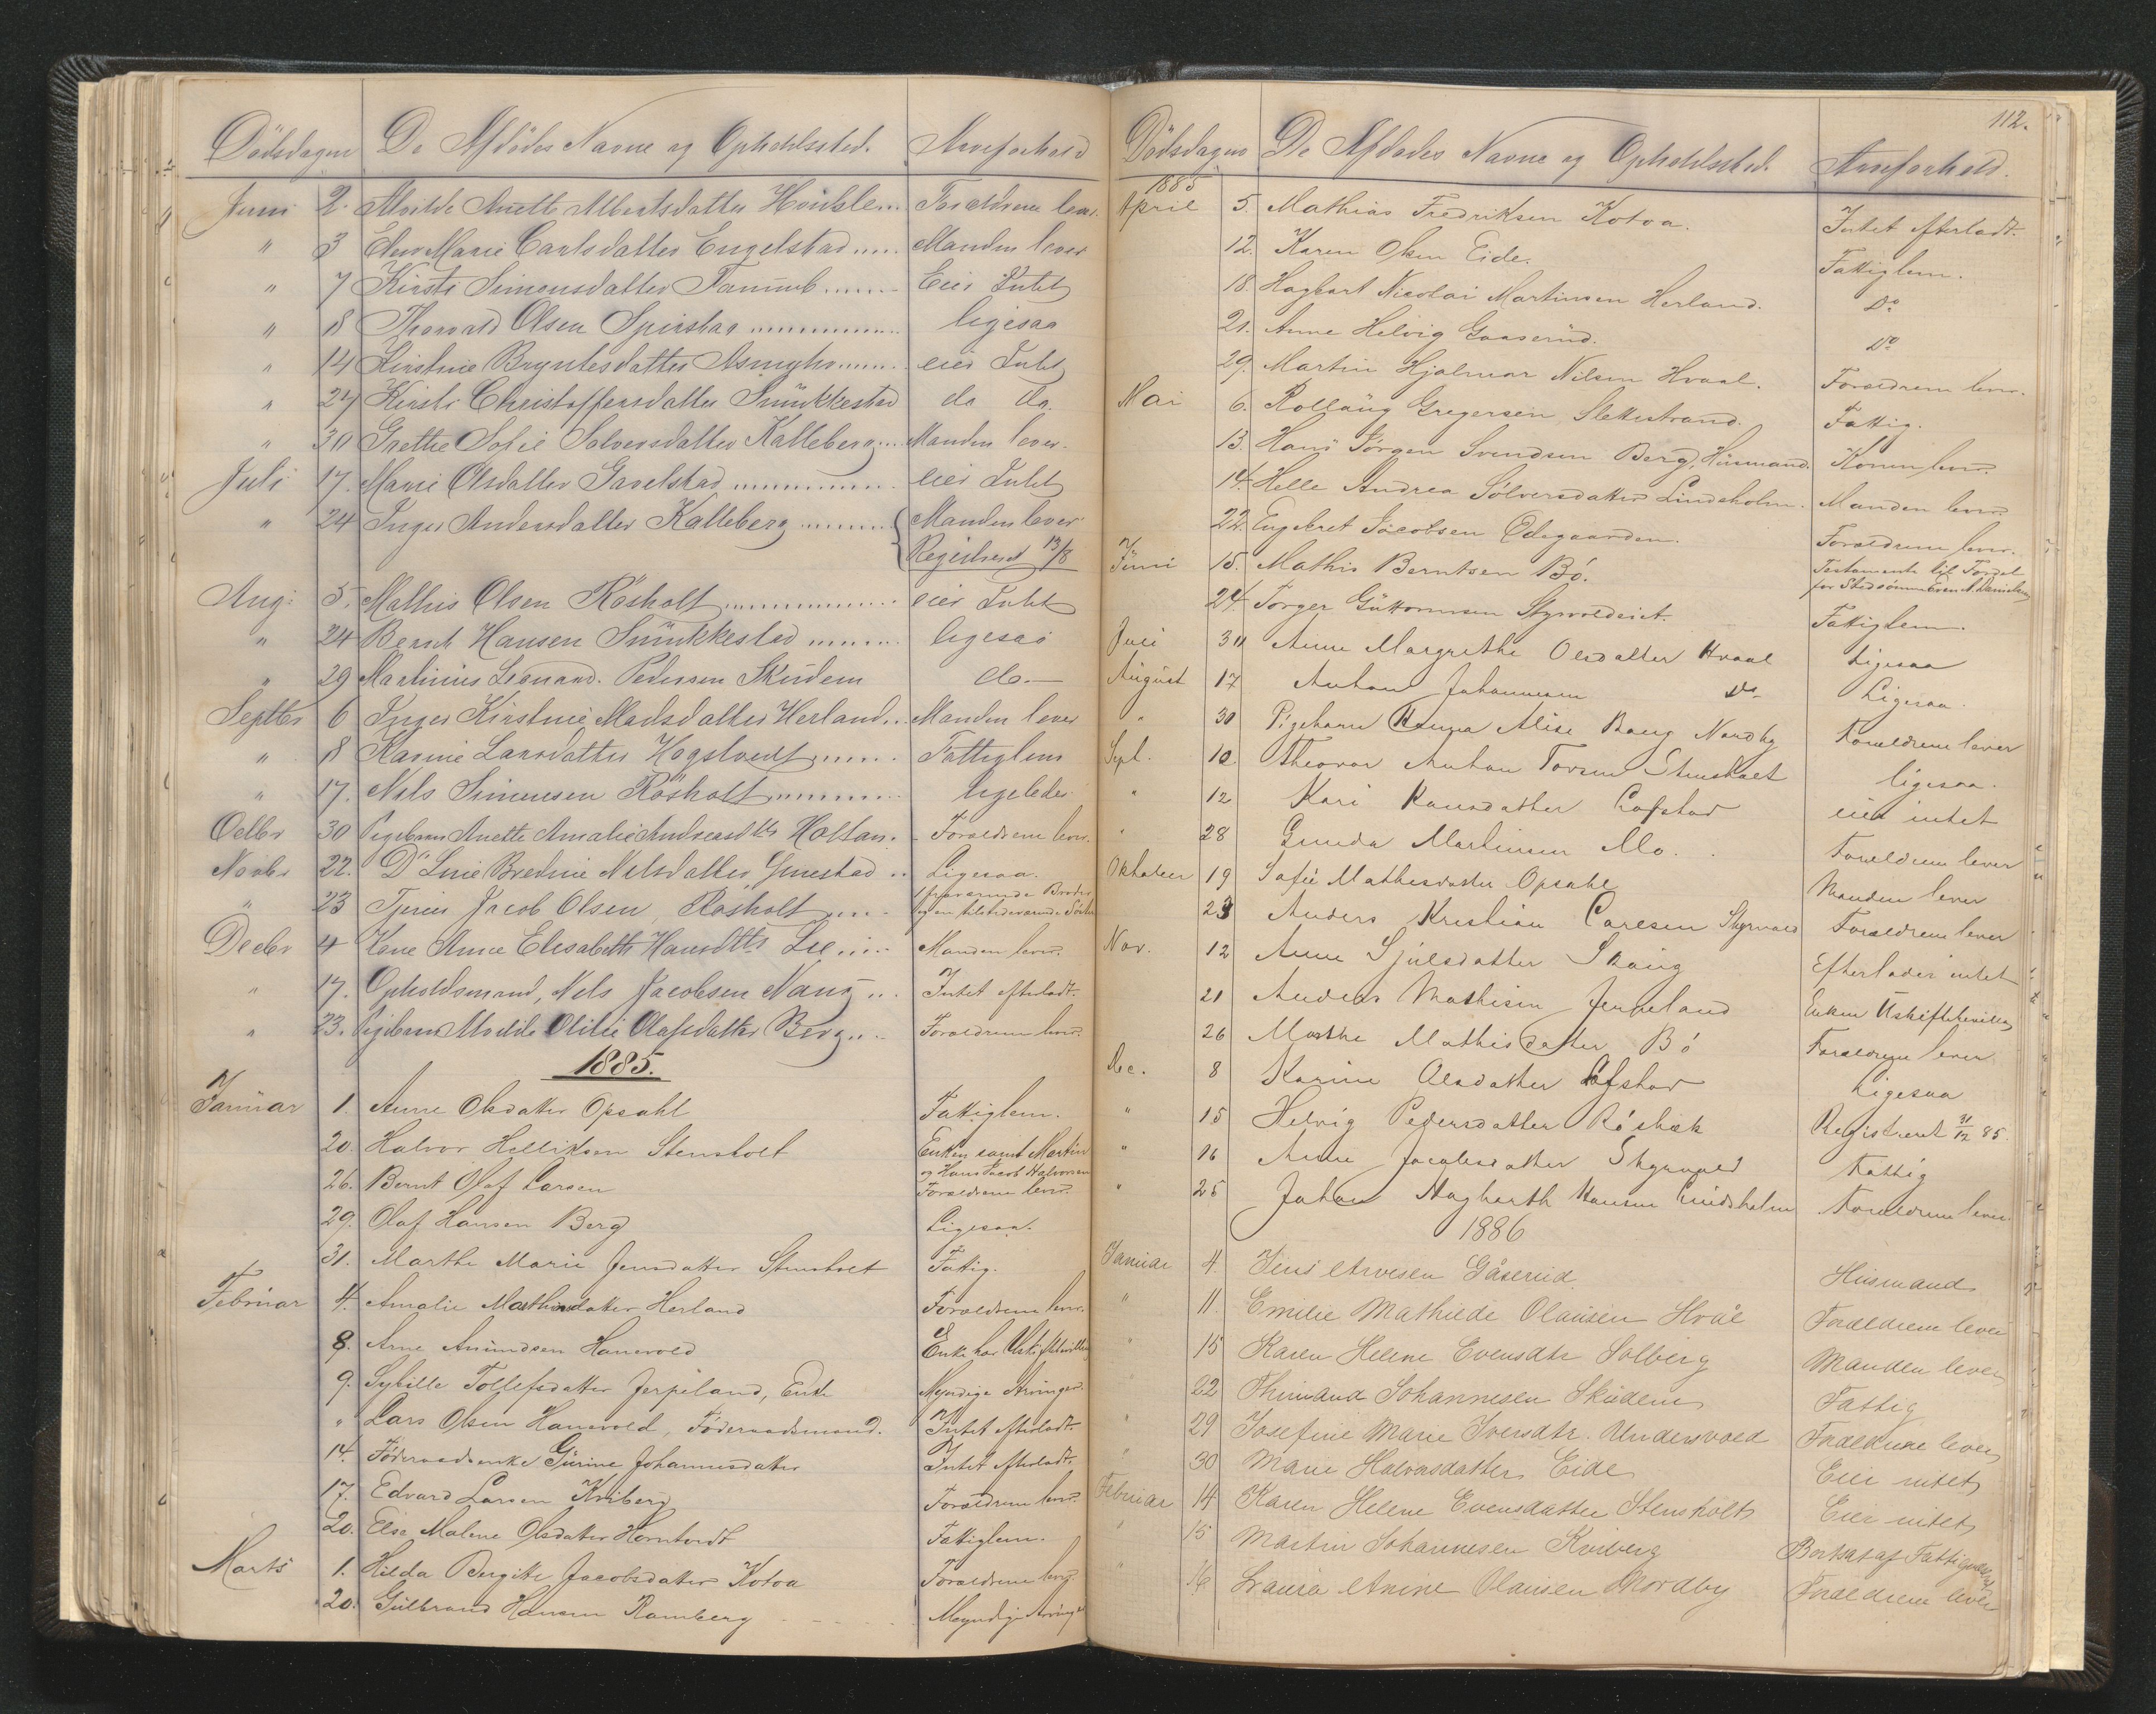 Dödsdagen De Afdödes Navne og Opholdssted. Arveforhold
Juni 2. Alvilde Anette Albertsdatter Hoidalen.. Forældrene lever.
" 3 Else Marie Carlsdatter Engelstad..... Manden lever
" 7 Kirsti Simensdatter ....... Eier Intet
" 8 Thorvald Olsen ............... ligesaa
" 14 Kirstine Bryntesdatter ....... eier Intet
" 24 Kirsti Christoffersdatter Snünkkestad do do.
" 30 Grethe Sofie Solversdatter Kalleberg.... Manden lever.
Juli 17. Marie Olsdatter Gavelstad ............... eier Intet
" 24 Inger Andersdatter Kalleberg ......... Manden lever
Registreret 13/8
Aug: 5. Mathis Olsen Rösholt ............... eier Intet
" 24 Bernt Hansen Snünkkestad ........ ligesaa
" 29 Martinius Leonard. Pedersen Sküdem do.—
Septbr 6 Inger Kirstine Madsdatter Herland.. Manden lever
" 8 Karine Larsdatter Hogstvedt...... Fattiglem
" 17. Nils Simensen Rösholt ......... ligeledes
Octbr 30 Pigebarn Anette Amalie Andreasdtr Holtan. Forældrene lever.
Novbr 22. Do Line Bredine Nilsdatter Gunestad .. Ligesaa.
" 23 Jacob Olsen, Rösholt .... fraværende Broder
og en tilstedeværende Søster
Decbr 4 Kone Anne Elisabeth Hansdtr Lie ..... Manden lever.
" 17. Opholdsmand, Nils Jacobsen Nang .. Intet efterladt.
" 23. Pigebarn Alvilde Otilie Olafsdatter Berg... Forældrene lever.
1885.
Januar 1. Anne Olsdatter Opsahl Fattiglem.
20. Halvor Helliksen Stensholt Enken samt Martin
og Hans Jacob Halvorsen
26. Bernt Olaf Larsen Forældrene lever.
29. Olaf Hansen Berg Ligesaa.
31. Marthe Marie Jensdatter Stensholt Fattig.
Februar 4. Amalie Mathisdatter Herland Forældrene lever.
8. Arne Amundsen Hanevold Enke har Uskiftebevilling
9. Sybille Tollefsdatter Jerpeland, Enke Myndige Arvinger.
" Lars Olsen Hanevold, Föderaadsmand. Intet efterladt.
14. Föderaadsenke Gürine Johannesdatter Intet efterladt.
17. Edvard Larsen Kviberg Forældrene lever.
20. Else Malene Olsdatter Horntvedt Fattiglem.
Marts 1. Hilda Bergitte Jacobsdatter Kotoa Forældrene lever.
20. Gülbrand Hansen Ramberg Myndige Arvinger
112.
Dödsdagen De Afdødes Navne og Opholdssted. Arveforhold.
1885
April 5. Mathias Fredriksen Kotoa. Intet efterladt.
12. Karen Olsen Eide. Fattiglem.
18. Hagbart Nicolai Martinsen Herland. Do
21. Anne Helvig Gaaserüd. Do
29. Martin Hjalmar Nilsen Hvaal. Forældrene lever.
Mai 6. Rollaug Gregersen Slettestrand. Fattig.
13. Hans Jörgen Svendsen Berg, Hüsmand. Konen lever.
14. Helle Andrea Sölversdatter Lindsholm. Manden lever.
22. Engebret Jacobsen Ödegaarden. Forældrene lever.
Juni 15. Mathis Berntsen Bö. Testamente til Fordel
for Stedsønnen Even A. Danielsen
24. Torger Güttormsen Styrvoldeiet. Fattiglem.
Juli 30 Anne Margrethe Olsdatter Hvaal Ligesaa
August 17 Anton Johannesen Do Ligesaa.
" 30 Pigebarn Hanna Alise Nordby Forældrene lever
Sept. 10 Theodor Anton Torsen Stensholt ligesaa.
" 12 Kari Hansdatter Lofstad eier intet
" 28 Gunda Martinsen Mo. Forældrene lever
Oktober 19 Sofie Mathisdatter Opsahl Manden lever
23 Anders Kristian Carlsen Styrvold Forældrene lever
Nov. 12 Anne Skaug Efterlader intet
21 Anders Mathisen Jerpeland Enken Uskiftebevilling
26 Marthe Mathisdatter Bö Forældrene lever
Dec. 8 Karine Olsdatter Lofstad Ligesaa
" 15 Helvig Pedersdatter Rösholt Registreret 31/12 85.
" 16 Anne Jacobsdatter Styrvold Fattig
" 25 Johan Hagbarth Hansen Lindsholm Forældrene lever.
1886
Januar 4. Jens Arvesen Gåserud Hüsmand
" 11. Emilie Mathilde Olausen Hvål Forældrene lever
" 15 Karen Helene Evensdtr Solberg Manden lever
22 Johannesen Sküdem Fattig
" 29 Josefine Marie Iversdtr. Undersvold Forældrene lever
" 30 Marie Halvorsdatter Eide Eier intet
Februar 14 Karen Helene Evensdatter Stensholt Eier intet
" 15 Martin Johannesen Kviberg Bortsat af Fattigvæsenet
" 16 Laura Anine Olausen Nordby Forældrene lever